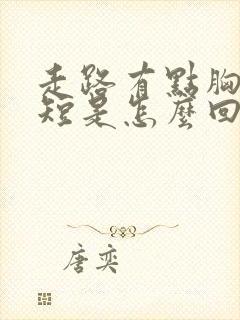 走路有點胸
短是怎麼回
唐奕